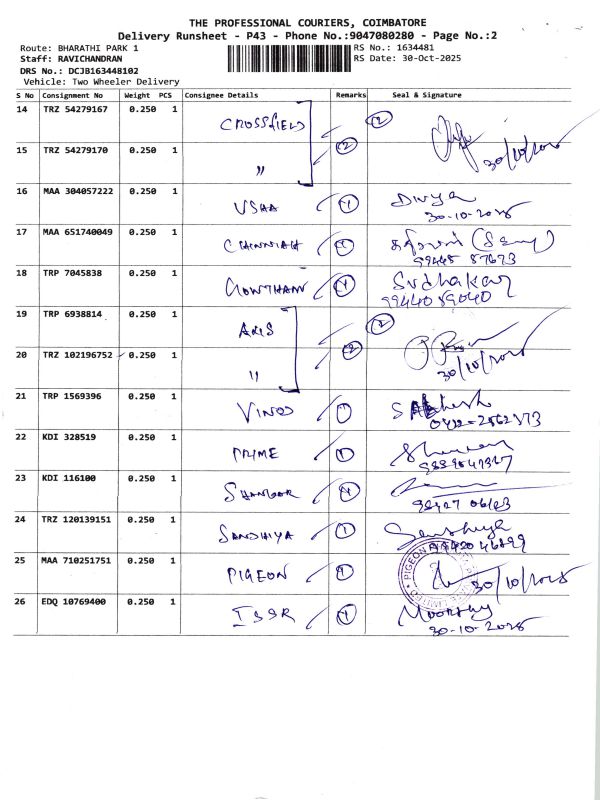 THE PROFESSIONAL COURIERS, COIMBATORE
Delivery Runsheet - P43 - Phone No.:9047080280 - Page No.:2
Route: BHARATHI PARK 1 RS No.: 1634481
Staff: RAVICHANDRAN RS Date: 30-Oct-2025
DRS No.: DCJB163448102
Vehicle: Two Wheeler Delivery
S No Consignment No Weight PCS Consignee Details Remarks Seal & Signature
14 TRZ 54279167 0.250 1 CROSSFIELD 2
15 TRZ 54279170 0.250 1 " 2 30/10/2025
16 MAA 304057222 0.250 1 USHA 1 Divya
30-10-2025
17 MAA 651740049 0.250 1 CHINNIAH 1
99448 87673
18 TRP 7045838 0.250 1 GOWTHAM 1 Sudhakar
9944089040
19 TRP 6938814 0.250 1 ARIS 2
20 TRZ 102196752 0.250 1 " 2 30/10/2025
21 TRP 1569396 0.250 1 VINOD 1
0422-2562373
22 KDI 328519 0.250 1 PRIME 1
23 KDI 116100 0.250 1 1
24 TRZ 120139151 0.250 1 SANDHIYA 1
25 MAA 710251751 0.250 1 PIGEON 1 PIGEON 30/10/2025
26 EDQ 10769400 0.250 1 ISSR 1 Moorthy
30-10-2025